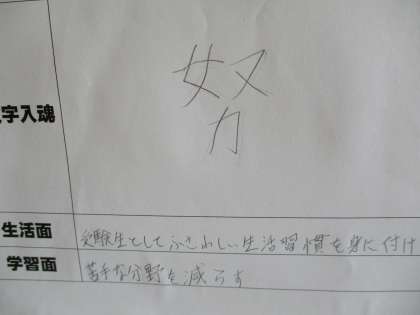 字入魂
努
生活面
受験生としてふさわしい生活習慣を身に付け
学習面
苦手な分野を減らす